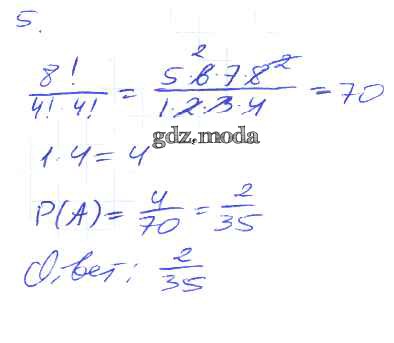 5.
8!/(4! · 4!) = (5 · 6 · 7 · 8)/(1 · 2 · 3 · 4) = 70
gdz.moda
1 · 4 = 4
P(A) = 4/70 = 2/35
Ответ: 2/35